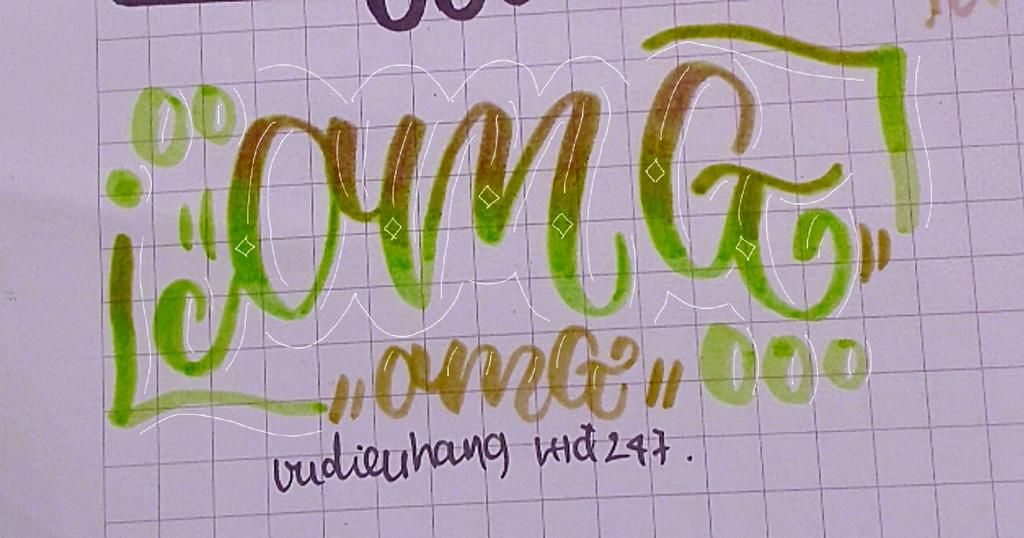 OMG
"OMG"
vudieuhang Hđ247.